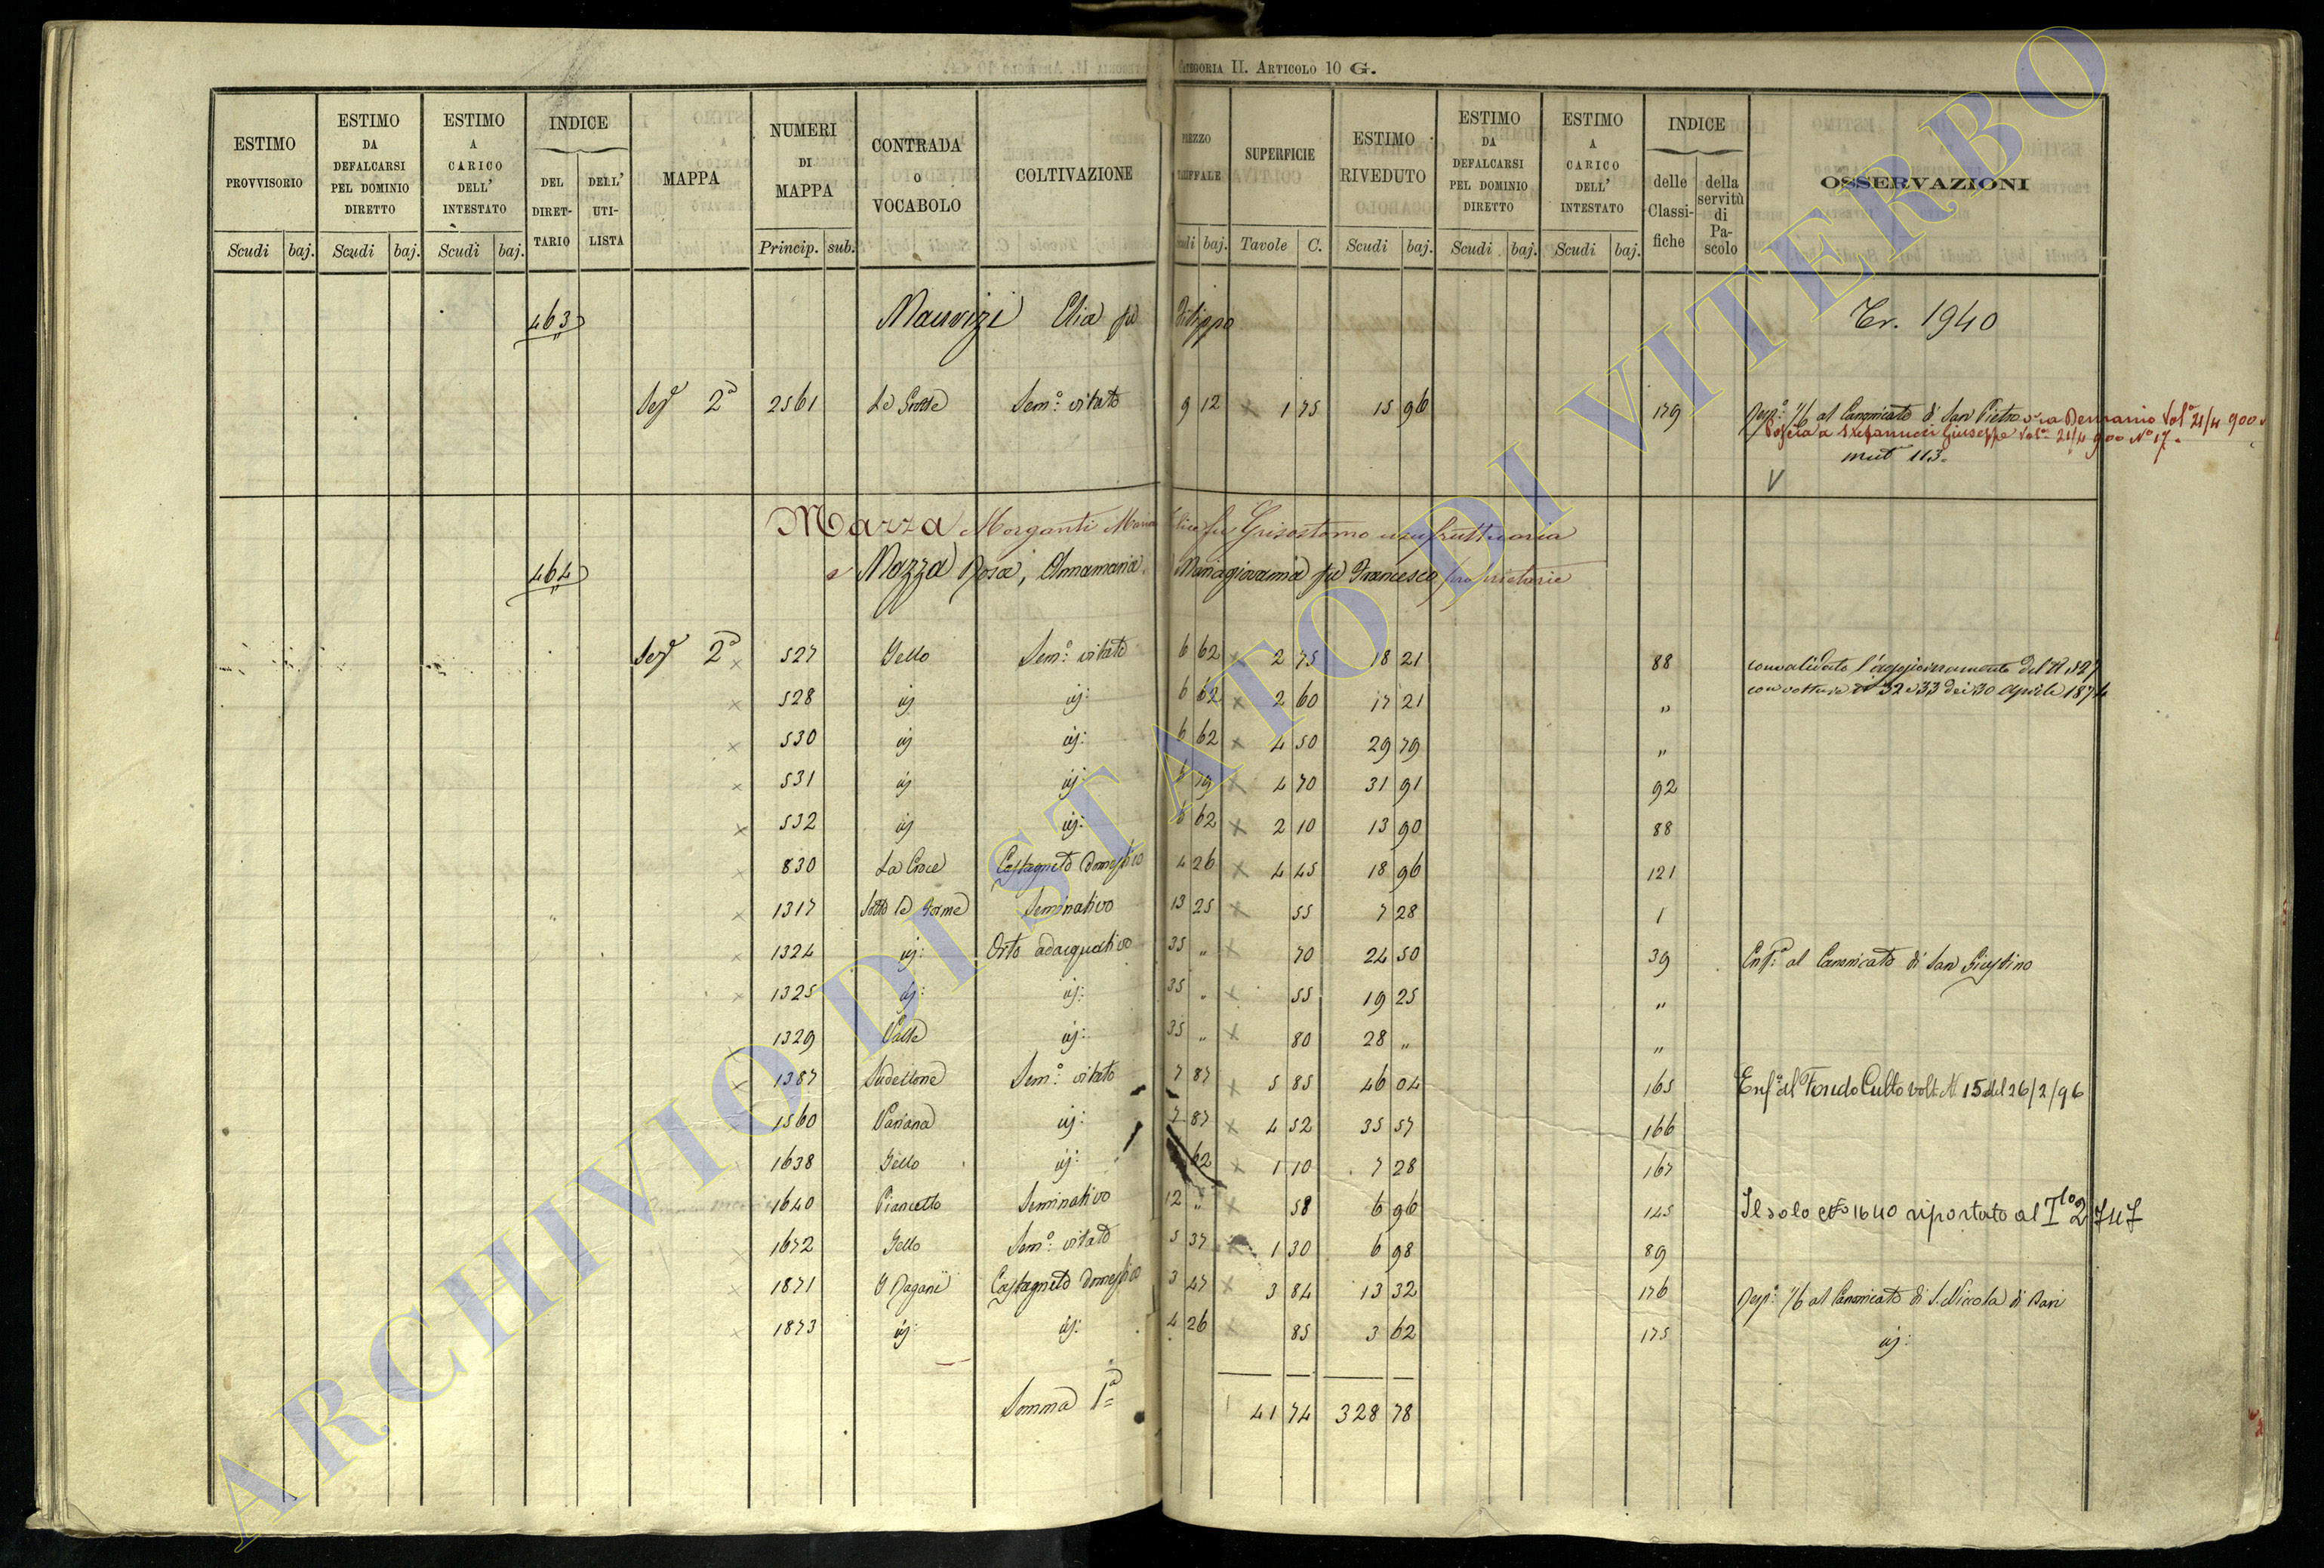 CATEGORIA II. ARTICOLO 10 G.
ESTIMO PROVVISORIO Scudi baj.
ESTIMO DA DEFALCARSI PEL DOMINIO DIRETTO Scudi baj.
ESTIMO A CARICO DELL' INTESTATO Scudi baj.
INDICE DEL DIRETTARIO DELL' UTILISTA
MAPPA
NUMERI DI MAPPA Princip. sub.
CONTRADA O VOCABOLO
COLTIVAZIONE
PREZZO TARIFFALE Scudi baj.
SUPERFICIE Tavole C.
ESTIMO RIVEDUTO Scudi baj.
ESTIMO DA DEFALCARSI PEL DOMINIO DIRETTO Scudi baj.
ESTIMO A CARICO DELL' INTESTATO Scudi baj.
INDICE delle Classifiche della servitù di Pascolo
OSSERVAZIONI
463 Maurizi Elia fu Filippo Tr. 1940
Sez 2ª 2561 Le Grotte Sem:º vitato 9 12 x 1 75 15 96 179 Resp: 1/6 al Canonicato di San Pietro ora Demanio Volª 21/4 900
Posera a Stefanucci Giuseppe Volª 21/4 900 Nº 17
mut 113
V
Mazza Morganti Maria Elisa fu Grisostomo usufruttuaria
464 e Mazza Rosa, Annamaria Mariagiovanna fu Francesco proprietarie
Sez 2ª x 527 Gello Sem:º vitato 6 62 x 2 75 18 21 88 convalidato l'aggiornamento del N 527
x 528 id id: 6 62 x 2 60 17 21 " con volture Nº 32 e 33 dei 30 Aprile 1874
x 530 id id: 6 62 x 4 50 29 79 "
x 531 id id: 6 79 x 4 70 31 91 92
x 532 id id: 6 62 x 2 10 13 90 88
x 830 La Croce Castagneto domestico 4 26 x 4 45 18 96 121
x 1317 Sotto le Forme Seminativo 13 25 x 55 7 28 1
x 1324 id: Orto adacquativo 35 " x 70 24 50 39 Enfª al Canonicato di San Giustino
x 1325 id: id: 35 " x 55 19 25 "
x 1329 Valle id: 35 " x 80 28 " "
x 1387 Sem:º vitato 7 87 x 5 85 46 04 165 Enfª al Fondo Culto volt. N. 15 del 26/2/96
1560 Pariana id: 7 87 x 4 52 35 57 166
1638 Gello id: 62 x 1 10 7 28 167
1640 Piancetto Seminativo 12 " x 58 6 96 145 Il solo Nº 1640 riportato al Tlo 2747
x 1672 Gello Sem:º vitato 5 37 x 1 30 6 98 89
x 1871 I Pagani Castagneto domestico 3 47 x 3 84 13 32 176 Resp: 1/6 al Canonicato di S. Niccola di Bari
x 1873 id: id: 4 26 x 85 3 62 175 id:
Somma 1ª 41 74 328 78
ARCHIVIO DI STATO DI VITERBO